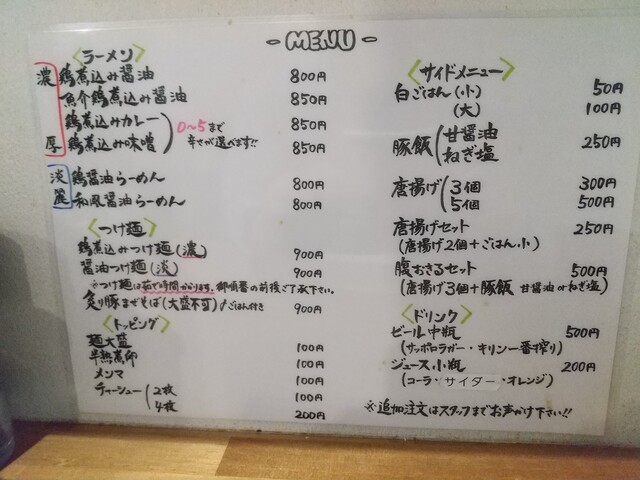 - MENU -
<ラーメン>
濃厚
鶏煮込み醤油 800円
魚介鶏煮込み醤油 850円
鶏煮込みカレー 850円
鶏煮込み味噌 850円
0〜5まで
辛さが選べます!!
淡麗
鶏醤油らーめん 800円
和風醤油らーめん 800円
<つけ麺>
鶏煮込みつけ麺(濃) 900円
醤油つけ麺(淡) 900円
※つけ麺は茹で時間かかります。御順番の前後ご了承下さい。
炙り豚まぜそば(大盛不可)ごはん付き 900円
<トッピング>
麺大盛 100円
半熟煮卵 100円
メンマ 100円
チャーシュー(2枚 100円
4枚 200円
<サイドメニュー>
白ごはん(小) 50円
(大) 100円
豚飯(甘醤油 ねぎ塩 250円
唐揚げ(3個 300円
5個 500円
唐揚げセット 250円
(唐揚げ2個+ごはん小)
腹おきるセット 500円
(唐揚げ3個+豚飯 甘醤油orねぎ塩)
<ドリンク>
ビール中瓶 500円
(サッポロラガー・キリン一番搾り)
ジュース小瓶 200円
(コーラ・サイダー・オレンジ)
※追加注文はスタッフまでお声がけ下さい!!